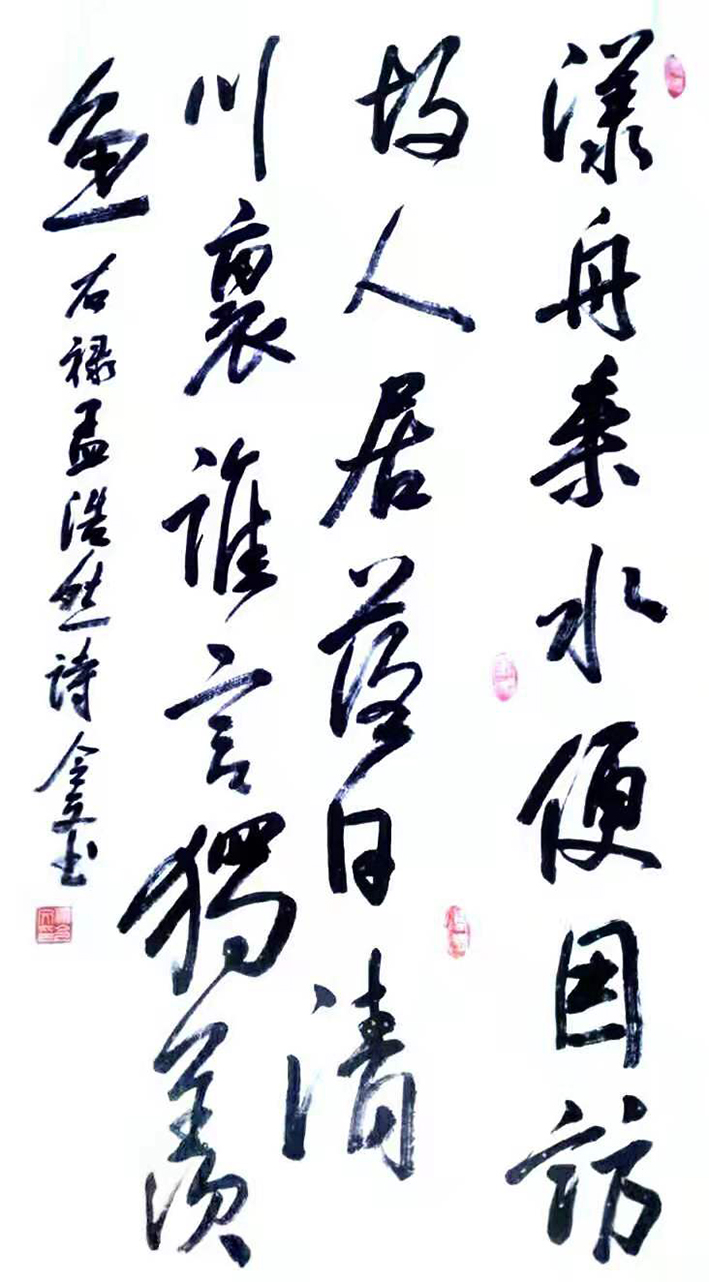 漾舟乘水便因訪
故人居落日清
川裏誰言獨羨
魚
右禄孟浩然詩 书